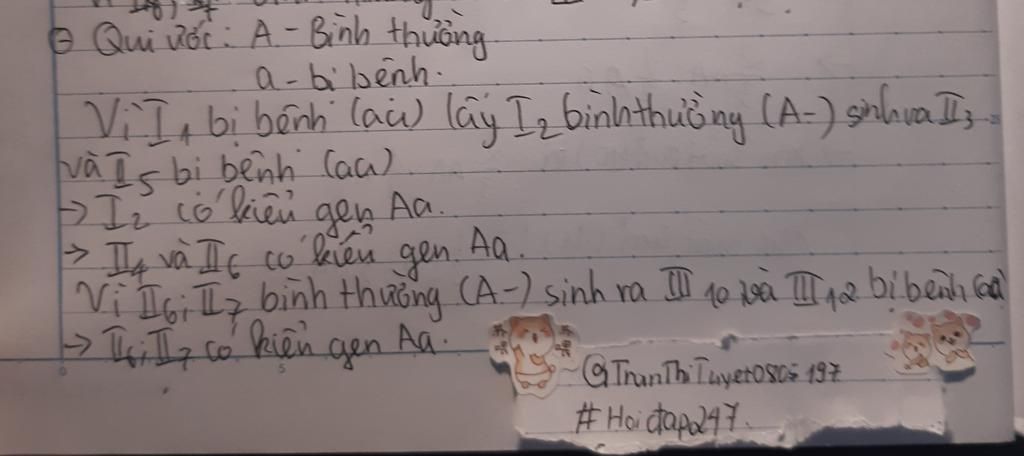 ⊖ Qui ước: A - Bình thường
a - bị bệnh.
Vì I1 bị bệnh (aa) lấy I2 bình thường (A-) sinh va II3
và I5 bị bệnh (aa)
→ I2 có kiểu gen Aa.
→ II4 và II6 có kiểu gen Aa.
Vì II6, II7 bình thường (A-) sinh ra III 10 và III 12 bị bệnh (aa)
→ II6, II7 có kiểu gen Aa.
#Hoidap247.